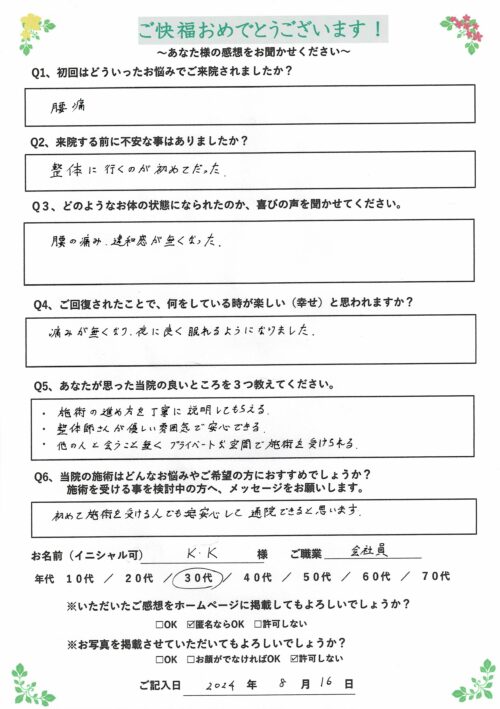 ご快福おめでとうございます！
～あなた様の感想をお聞かせください～
Q1、初回はどういったお悩みでご来院されましたか？
腰痛
Q2、来院する前に不安な事はありましたか？
整体に行くのが初めてだった.
Q３、どのようなお体の状態になられたのか、喜びの声を聞かせてください。
腰の痛み、違和感が無くなった.
Q4、ご回復されたことで、何をしている時が楽しい（幸せ）と思われますか？
痛みが無くなり、夜に良く眠れるようになりました.
Q5、あなたが思った当院の良いところを３つ教えてください。
・施術の進め方を丁寧に説明してもらえる.
・整体師さんが優しい雰囲気で安心できる.
・他の人と会うこと無く プライベートな空間で施術を受けられる.
Q6、当院の施術はどんなお悩みやご希望の方におすすめでしょうか？
施術を受ける事を検討中の方へ、メッセージをお願いします。
初めて施術を受ける人でも安心して通院できると思います.
お名前（イニシャル可） K.K 様 ご職業 会社員
年代 10代 ／ 20代 ／ 30代 ／ 40代 ／ 50代 ／ 60代 ／ 70代
※いただいたご感想をホームページに掲載してもよろしいでしょうか？
☐OK ☑匿名ならOK ☐許可しない
※お写真を掲載させていただいてもよろしいでしょうか？
☐OK ☐お顔がでなければOK ☑許可しない
ご記入日 2024 年 8 月 16 日